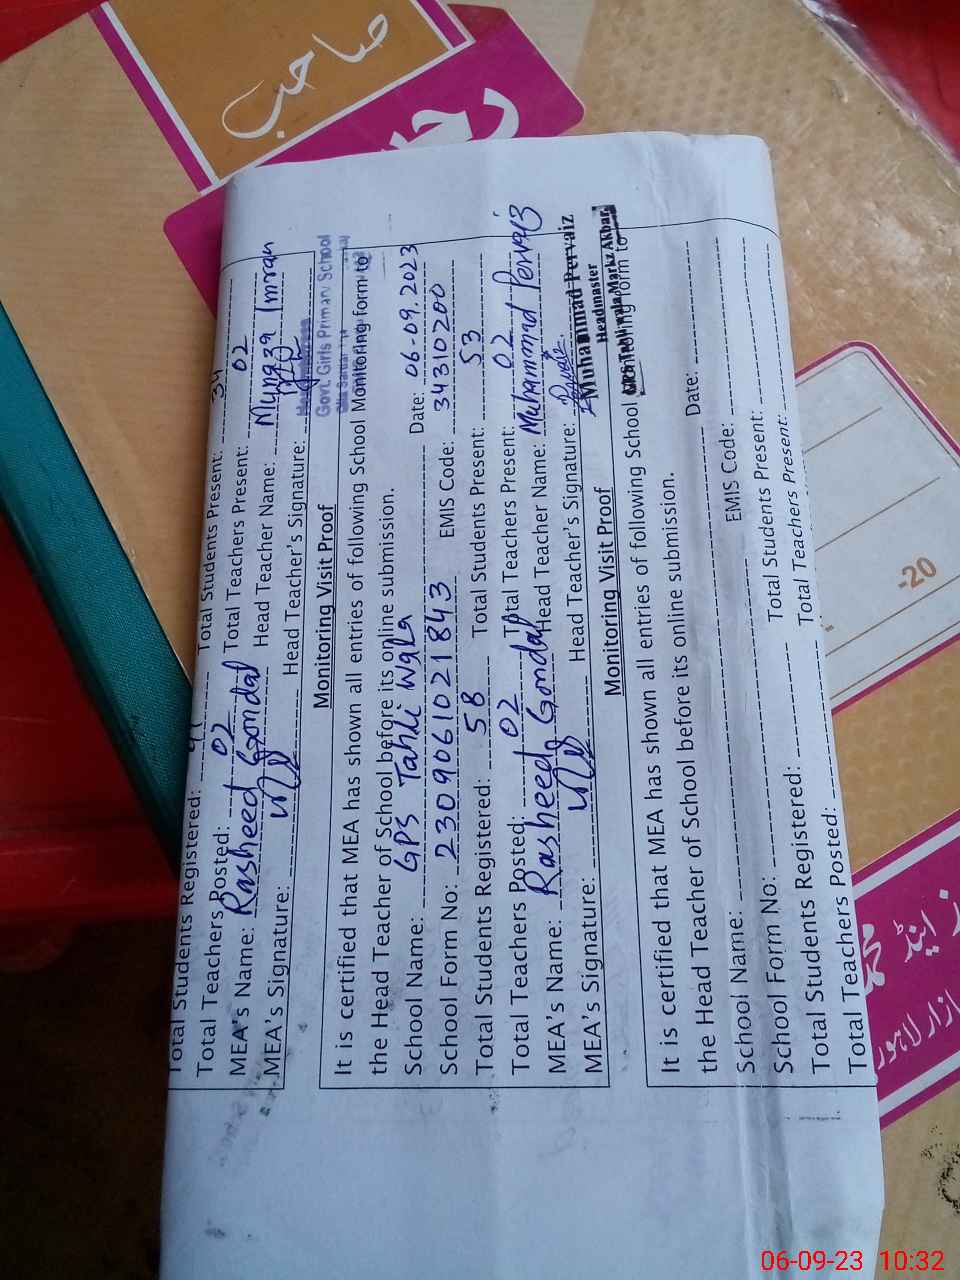 صاحب
Total Students Registered: 41 Total Students Present: 34
Total Teachers Posted: 02 Total Teachers Present: 02
MEA's Name: Rasheed Gondal Head Teacher Name: Munaza Imran
MEA's Signature: Head Teacher's Signature:
Govt. Girls Primary School
Monitoring Visit Proof
It is certified that MEA has shown all entries of following School Monitoring form to
the Head Teacher of School before its online submission.
School Name: GPS Tahli Wala Date: 06-09.2023
School Form No: 2309061021843 EMIS Code: 34310200
Total Students Registered: 58 Total Students Present: 53
Total Teachers Posted: 02 Total Teachers Present: 02
MEA's Name: Rasheed Gondal Head Teacher Name: Muhammad Pervaiz
MEA's Signature: Head Teacher's Signature:
Muhammad Pervaiz
Headmaster
GPS Tahliwala Markz Akbar
Monitoring Visit Proof
It is certified that MEA has shown all entries of following School Monitoring form to
the Head Teacher of School before its online submission.
School Name: Date:
School Form No: EMIS Code:
Total Students Registered: Total Students Present:
Total Teachers Posted: Total Teachers Present:
-20
06-09-23 10:32